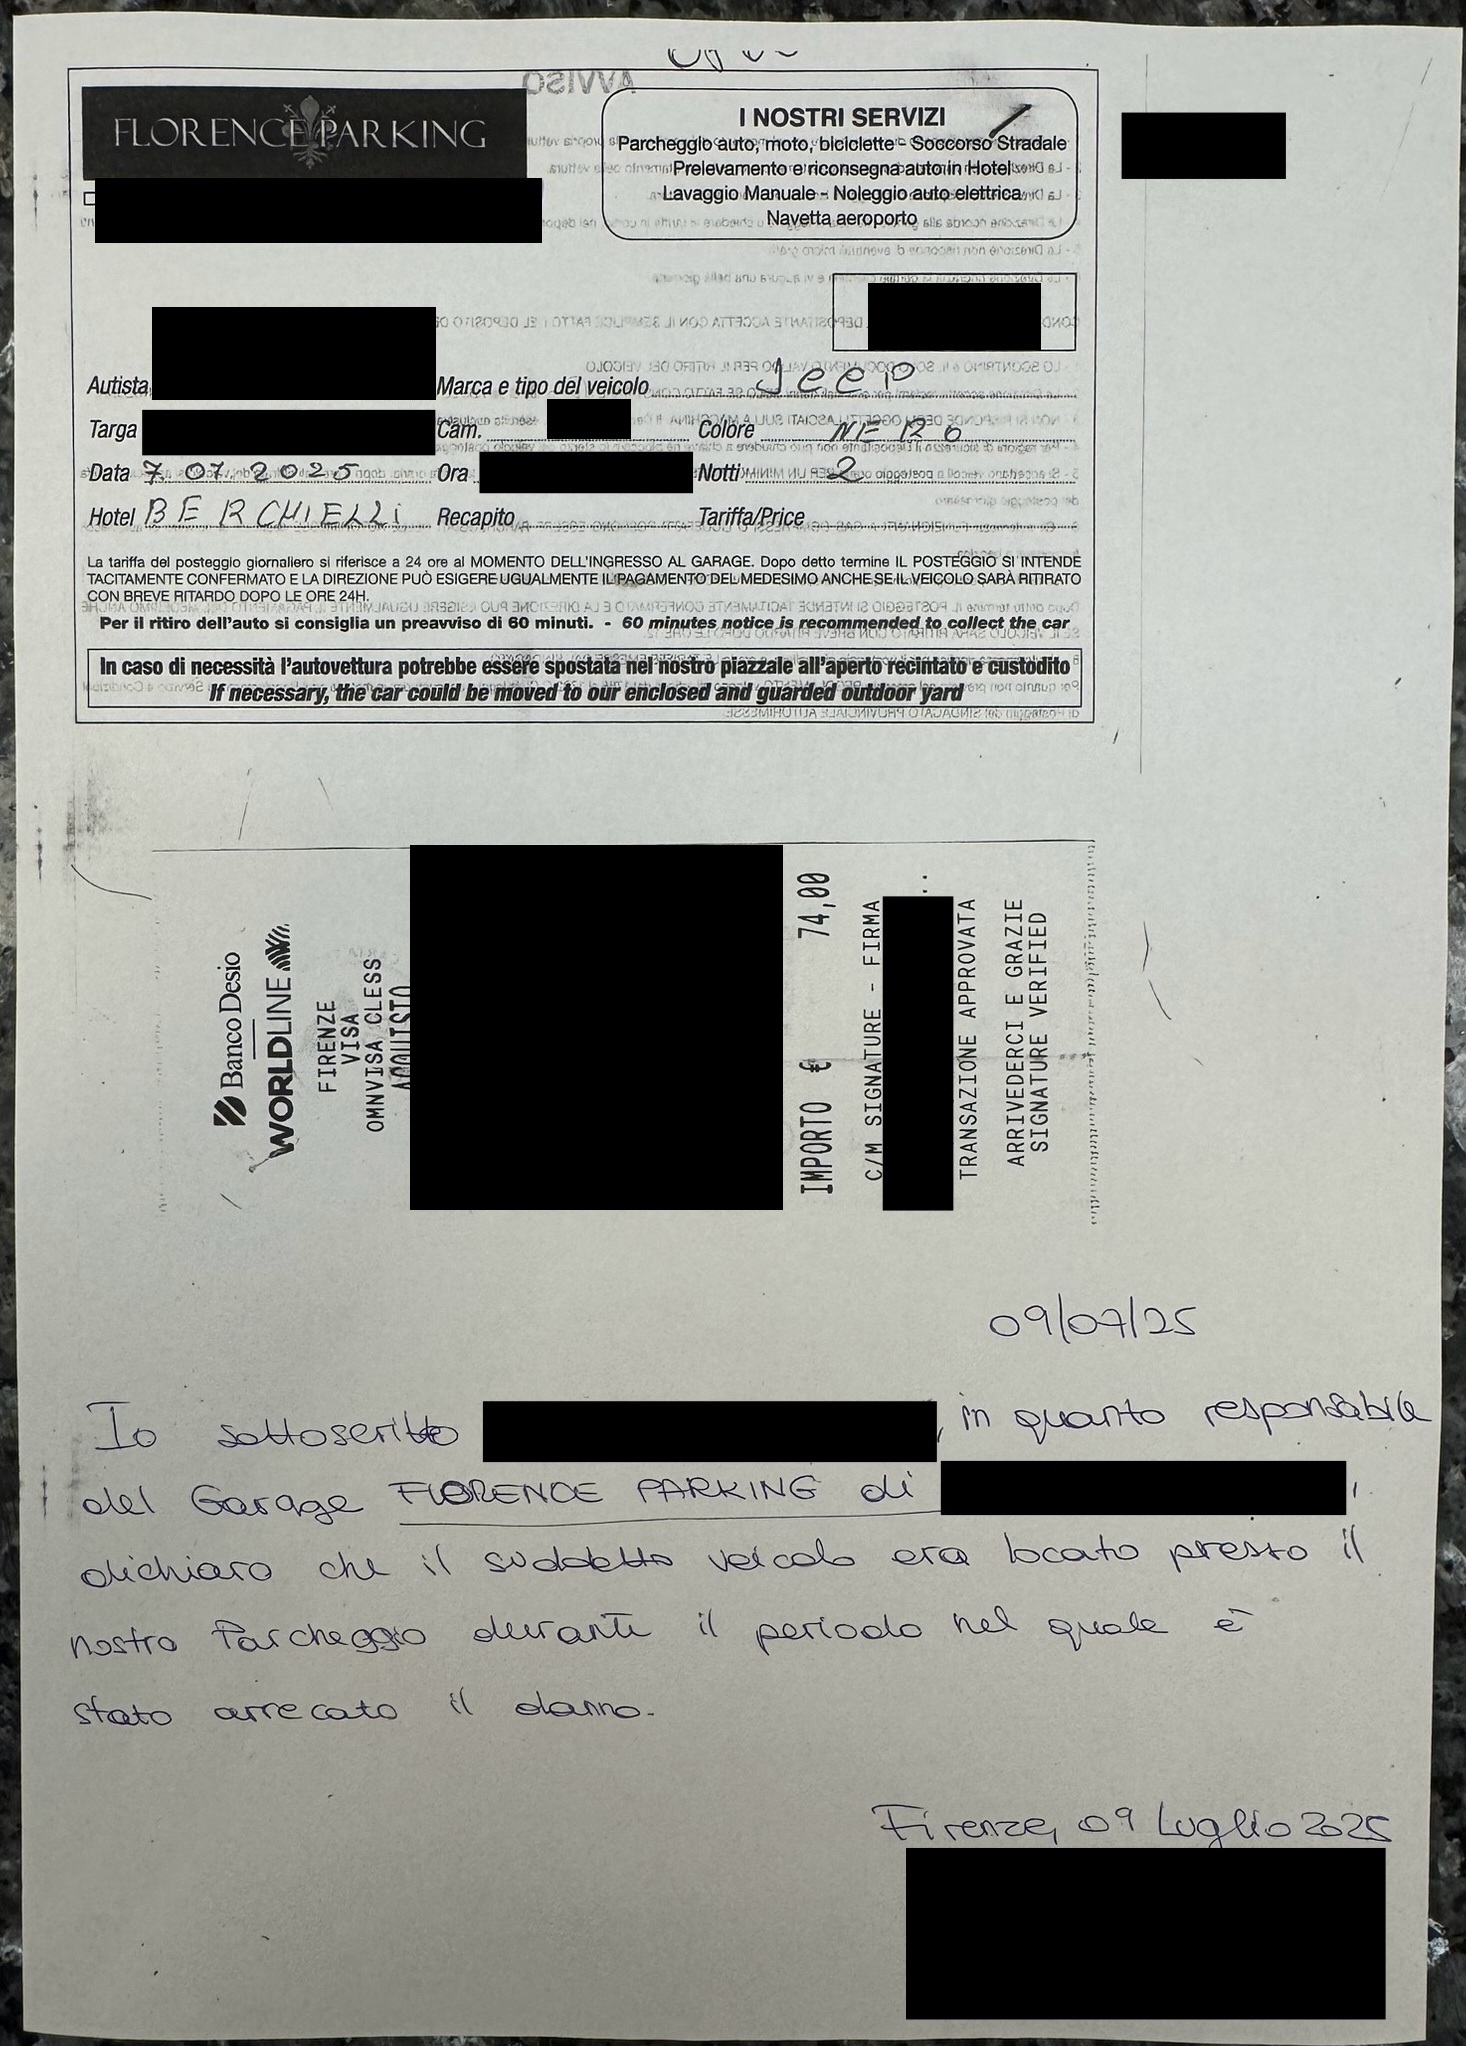 AVVISO
FLORENCE PARKING
I NOSTRI SERVIZI
Parcheggio auto, moto, biciclette - Soccorso Stradale
Prelevamento e riconsegna auto in Hotel
Lavaggio Manuale - Noleggio auto elettrica
Navetta aeroporto
Autista Marca e tipo del veicolo Jeep
Targa Cam. Colore NERO
Data 7.07.2025 Ora Notti 2
Hotel BERCHIELLI Recapito Tariffa/Price
La tariffa del posteggio giornaliero si riferisce a 24 ore al MOMENTO DELL'INGRESSO AL GARAGE. Dopo detto termine IL POSTEGGIO SI INTENDE
TACITAMENTE CONFERMATO E LA DIREZIONE PUÒ ESIGERE UGUALMENTE IL PAGAMENTO DEL MEDESIMO ANCHE SE IL VEICOLO SARÀ RITIRATO
CON BREVE RITARDO DOPO LE ORE 24H.
Per il ritiro dell'auto si consiglia un preavviso di 60 minuti. - 60 minutes notice is recommended to collect the car
In caso di necessità l'autovettura potrebbe essere spostata nel nostro piazzale all'aperto recintato e custodito
If necessary, the car could be moved to our enclosed and guarded outdoor yard
Banco Desio
WORLDLINE
FIRENZE
VISA
OMNVISA CLESS
ACQUISTO
IMPORTO € 74,00
C/M SIGNATURE - FIRMA
TRANSAZIONE APPROVATA
ARRIVEDERCI E GRAZIE
SIGNATURE VERIFIED
09/07/25
Io sottoscritto , in quanto responsabile
del Garage FLORENCE PARKING di ,
dichiaro che il suddetto veicolo era locato presso il
nostro Parcheggio durante il periodo nel quale è
stato arrecato il danno.
Firenze, 09 Luglio 2025